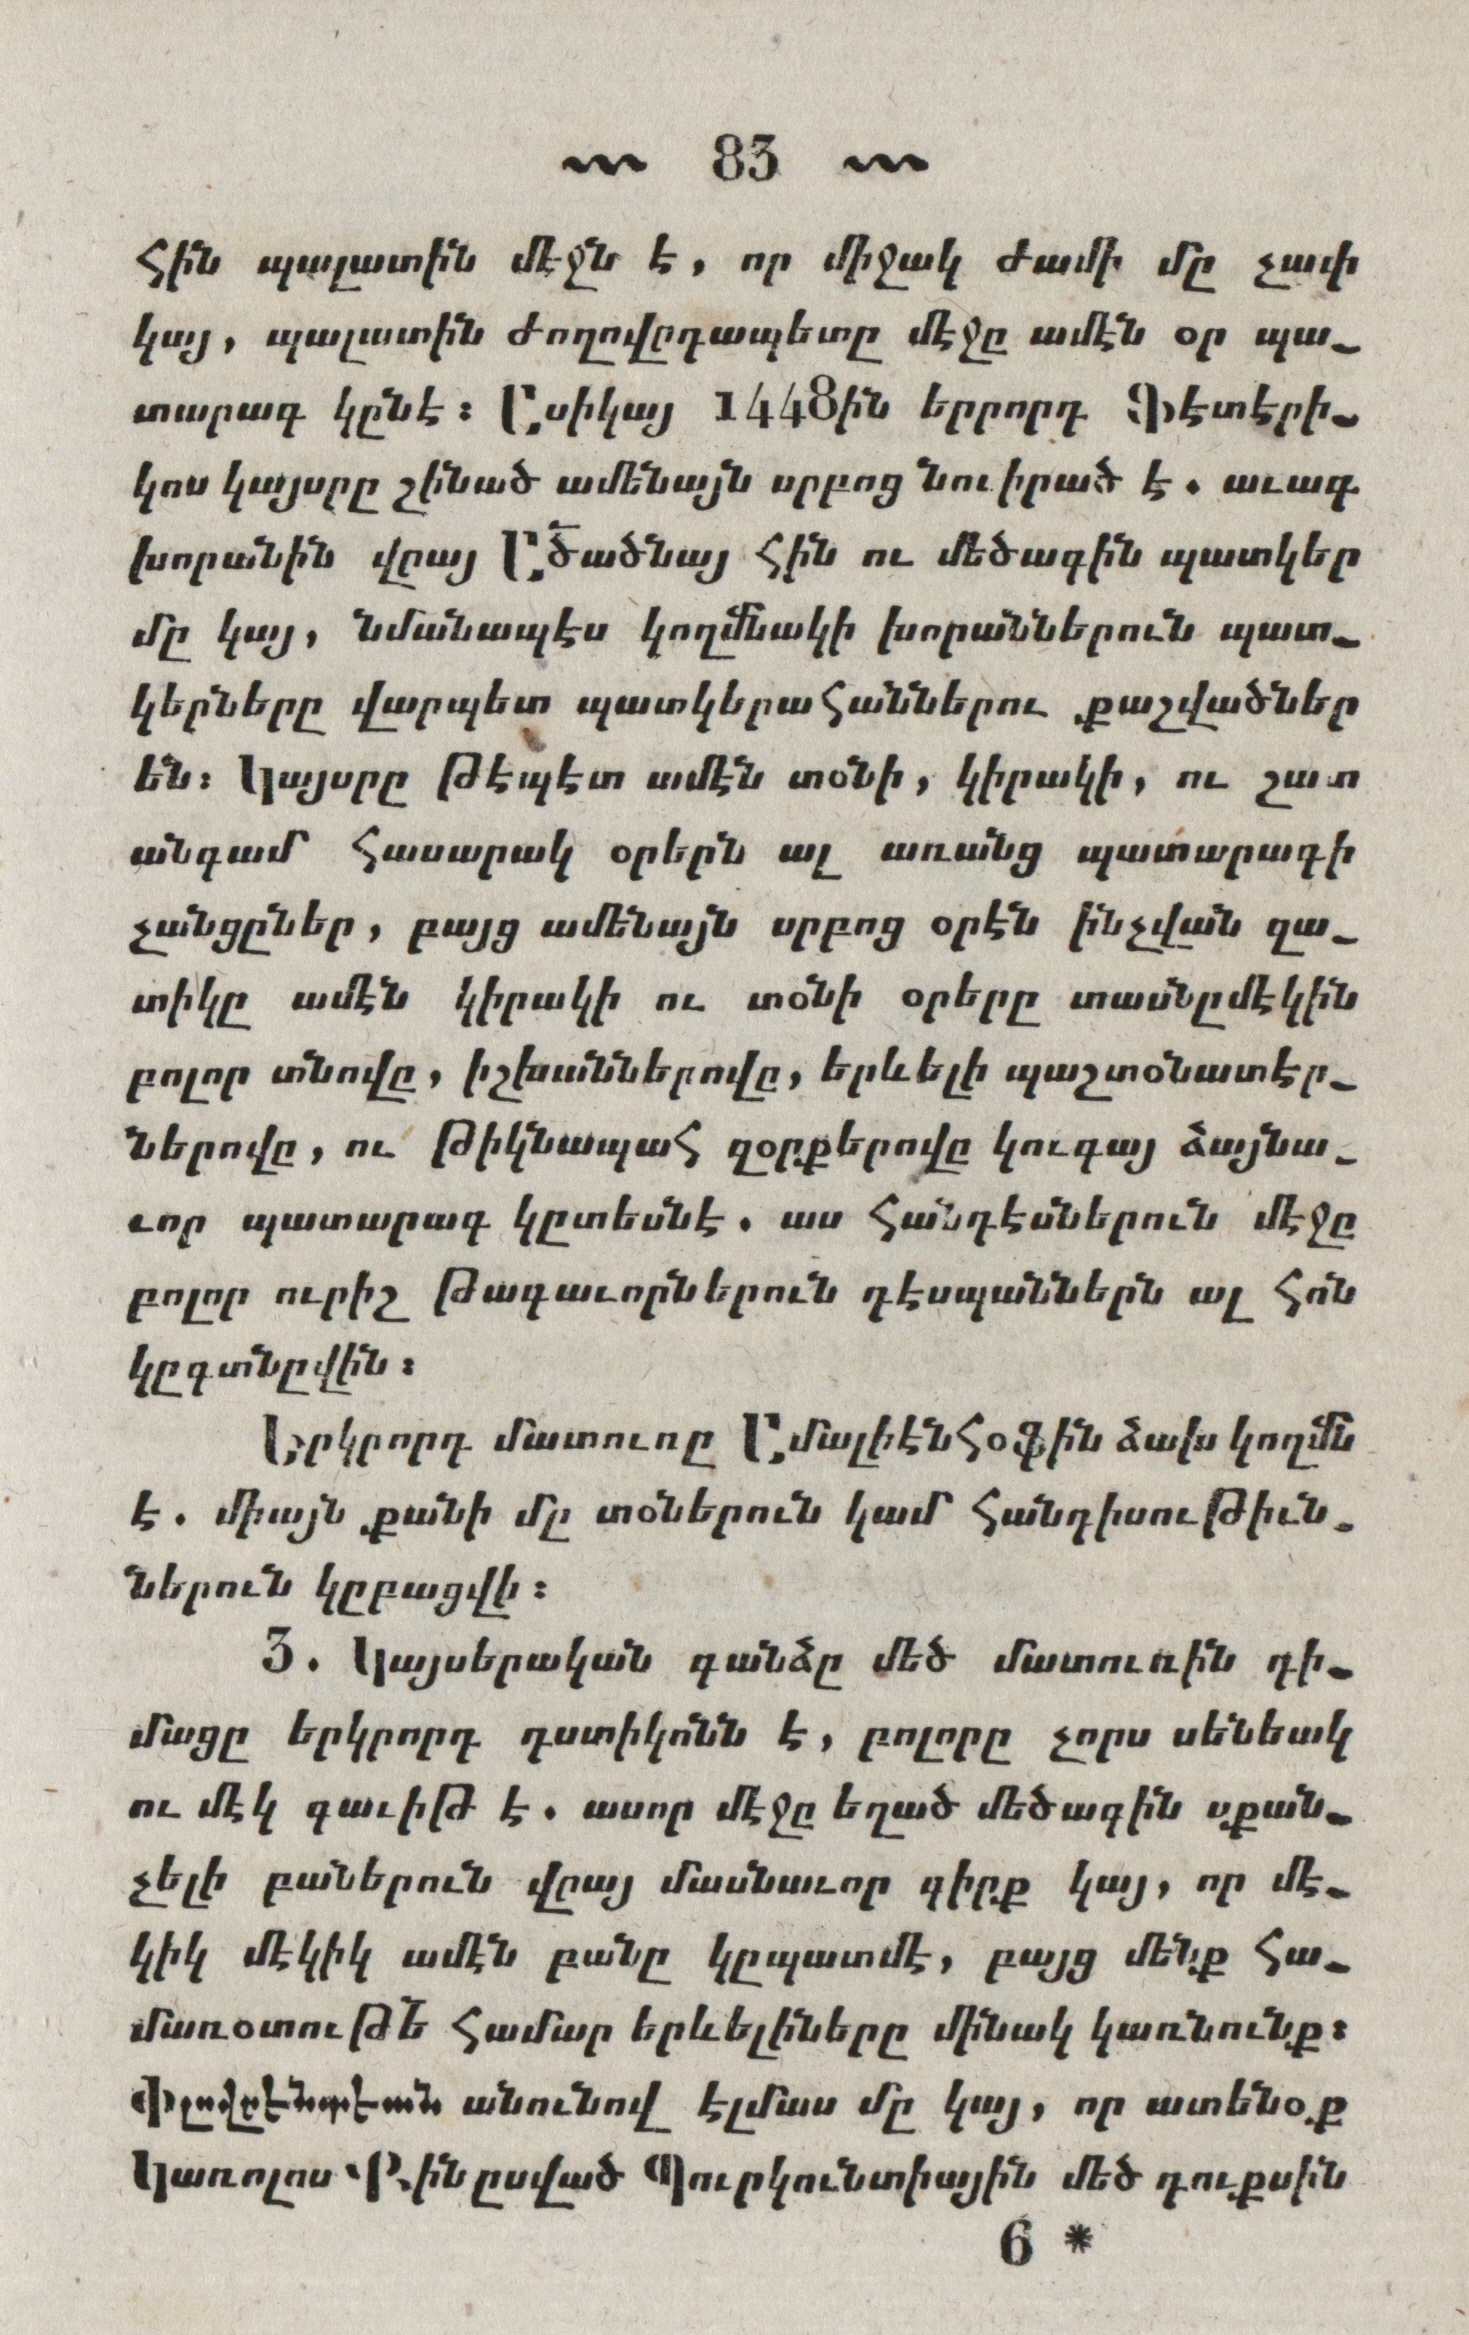 83
հին պալատին մէջն է, որ միջակ ժամի մը չափ
կայ, պալատին ժողովըդապետը մէջը ամէն օր պա֊
տարագ կընէ։ Ըսիկայ 1448ին երրորդ Ֆէտէրի֊
կոս կայսրը շինած ամենայն սրբոց նուիրած է. աւագ
խորանին վըայ Ըծածնայ հին ու մեծագին պատկեր
մը կայ, նմանապէս կողմնակի խորաններուն պատ֊
կերները վարպետ պատկերահաններու քաշվածներ
են։ Կայսրը թէպէտ ամէն տօնի, կիրակի, ու շատ
անգամ հասարակ օրերն ալ առանց պատարագի
չանցըներ, բայց ամենայն սրբոց օրէն ինչվան զա֊
տիկը ամէն կիրակի ու տօնի օրերը տասնըմէկին
բոլոր տնովը, իշխաններովը, երևելի պաշտօնատէր֊
ներովը, ու թիկնապահ զօրքերովը կուգայ ձայնա֊
ւոր պատարագ կըտեսնէ. աս հանդէսներուն մէջը
բոլոր ուրիշ թագաւորներուն դէսպաններն ալ հոն
կըգտնըվին։
Երկրորդ մատուռը Ըմալիէնհօֆին ձախ կողմն
է. միայն քանի մը տօներուն կամ հանդիսութիւն֊
ներուն կըբացվի։
3. Կայսերական գանձը մեծ մատուռին դի֊
մացը երկրորդ դստիկոնն է, բոլորը չորս սենեակ
ու մէկ գաւիթ է. ասոր մէջը եղած մեծագին սքան֊
չելի բաներուն վըայ մասնաւոր գիրք կայ, որ մէ֊
կիկ մէկիկ ամէն բանը կըպատմէ, բայց մենք հա֊
մառօտութե՜ համար երևելիները մինակ կառնունք։
Փլօվընթէան անունով էլմաս մը կայ, որ ատենօք
Կառոլոս Քինըսված Պուրկունտիային մեծ դուքսին
6 *